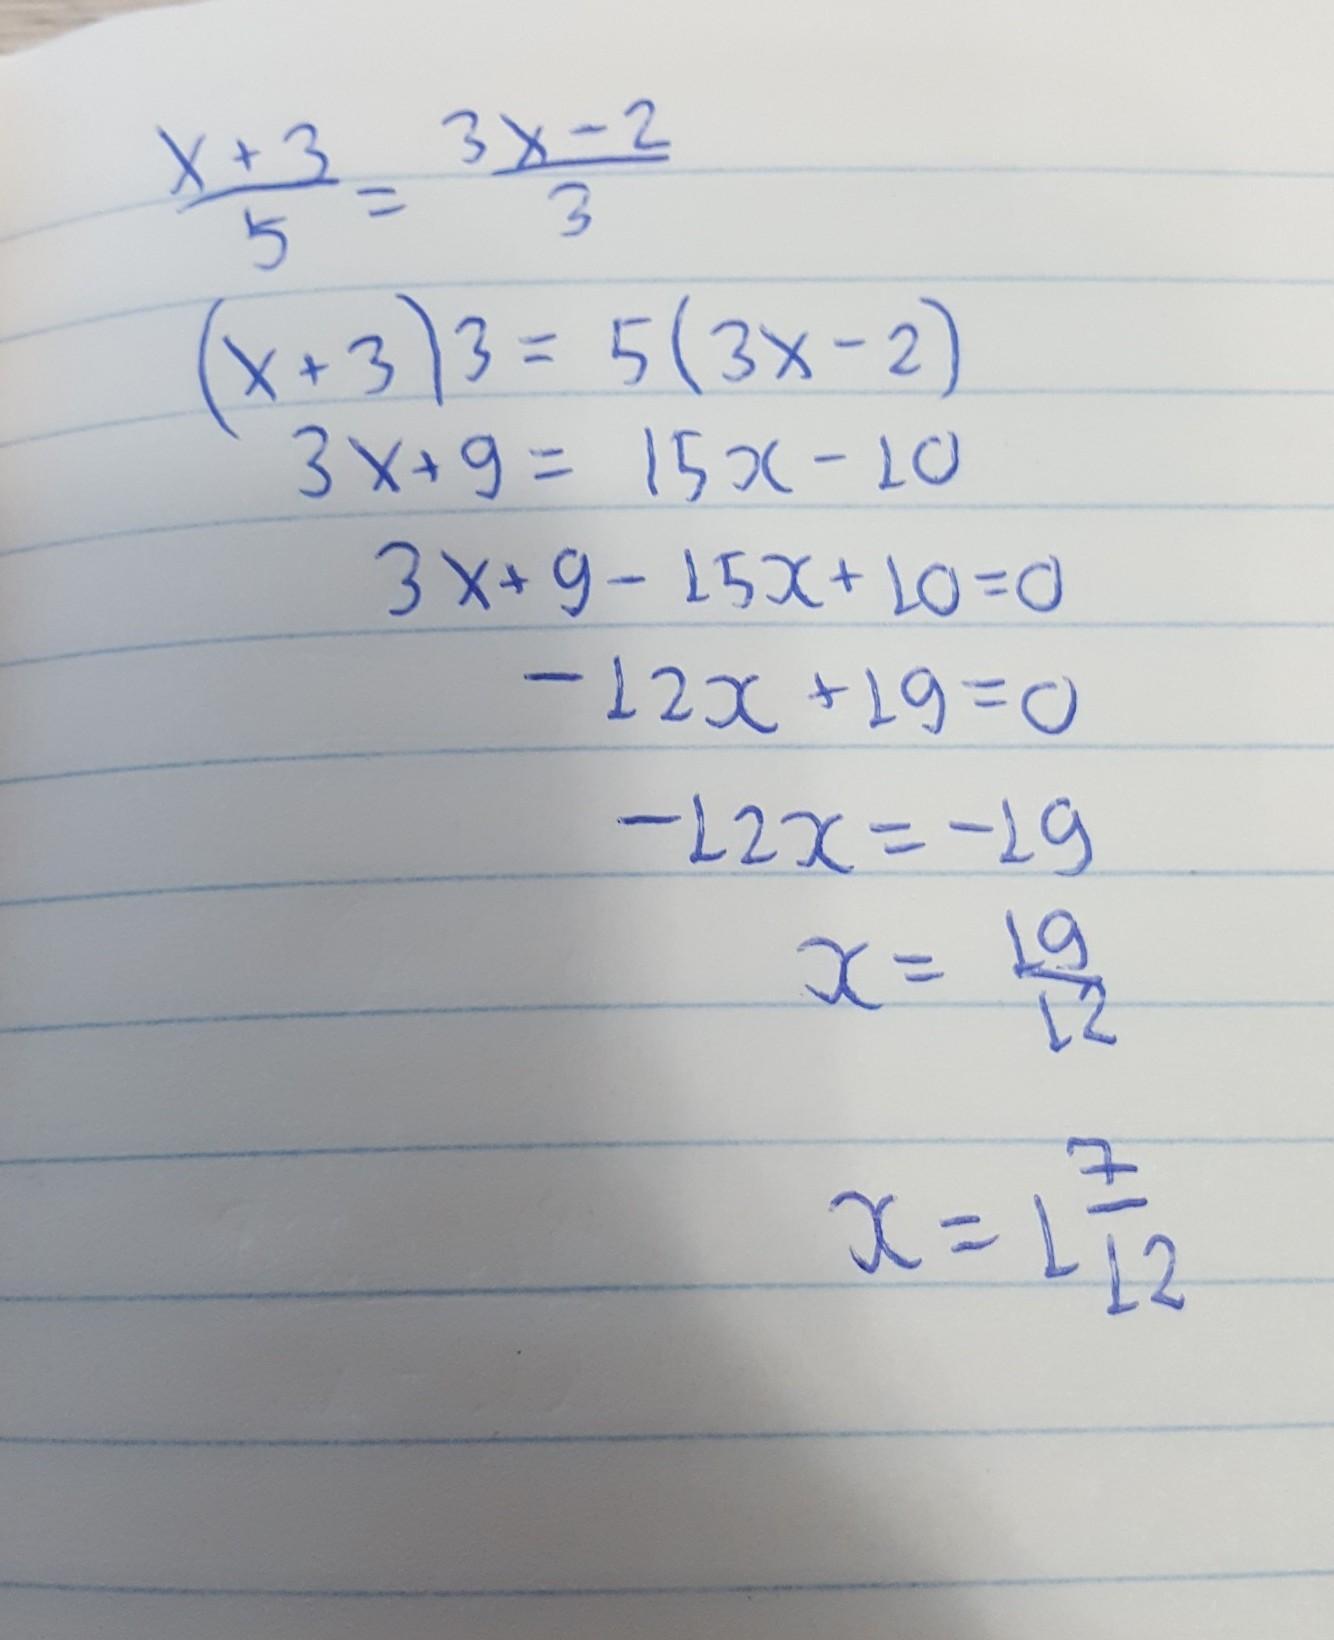 x+3/5 = 3x-2/3
(x+3)3 = 5(3x-2)
3x+9 = 15x-10
3x+9-15x+10=0
-12x+19=0
-12x=-19
x = 19/12
x = 1 7/12